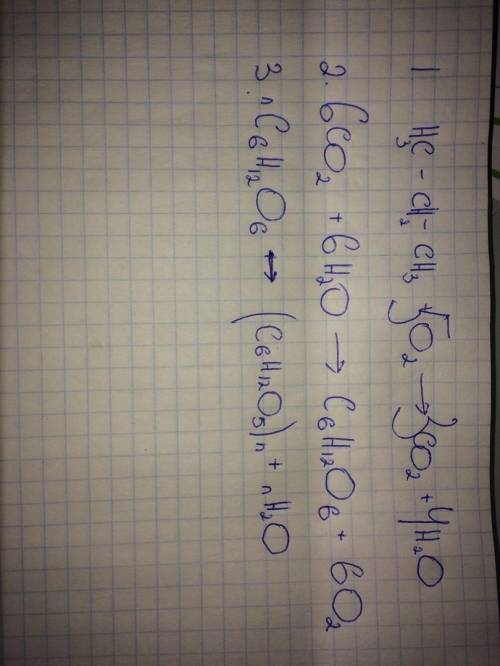 1 H₃C - CH₂ - CH₃ + 5O₂ → 3CO₂ + 4H₂O
2. 6CO₂ + 6H₂O → C₆H₁₂O₆ + 6O₂
3. nC₆H₁₂O₆ ↔ (C₆H₁₂O₅)n + nH₂O